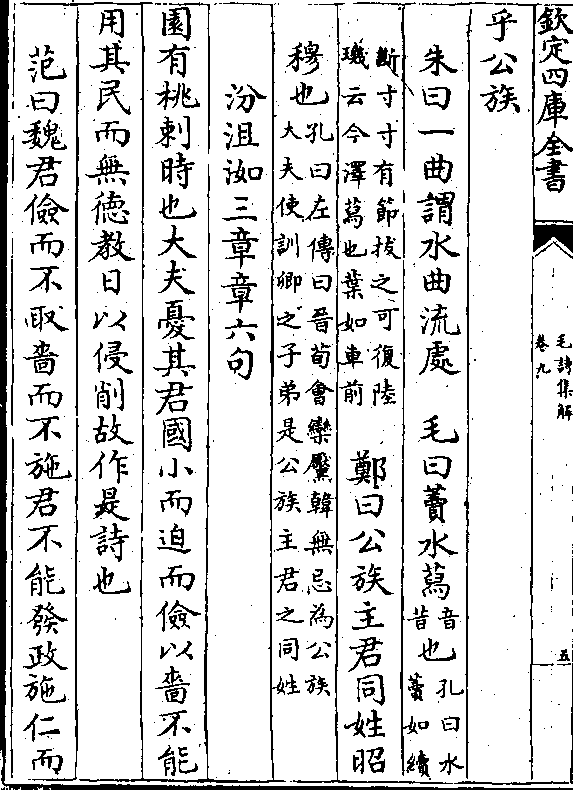 欽定四庫全書
毛詩集解
卷九
五
乎公族
朱曰一曲謂水曲流處　毛曰藚水蕮音昔也孔曰水藚如續
斷寸寸有節拔之可復陸璣云今澤蕮也葉如車前　鄭曰公族主君同姓昭
穆也孔曰左傳曰晉荀會欒黶韓無忌為公族大夫使訓卿之子弟是公族主君之同姓
汾沮洳三章章六句
園有桃刺時也大夫憂其君國小而迫而儉以嗇不能
用其民而無德教日以侵削故作是詩也
范曰魏君儉而不取嗇而不施君不能發政施仁而